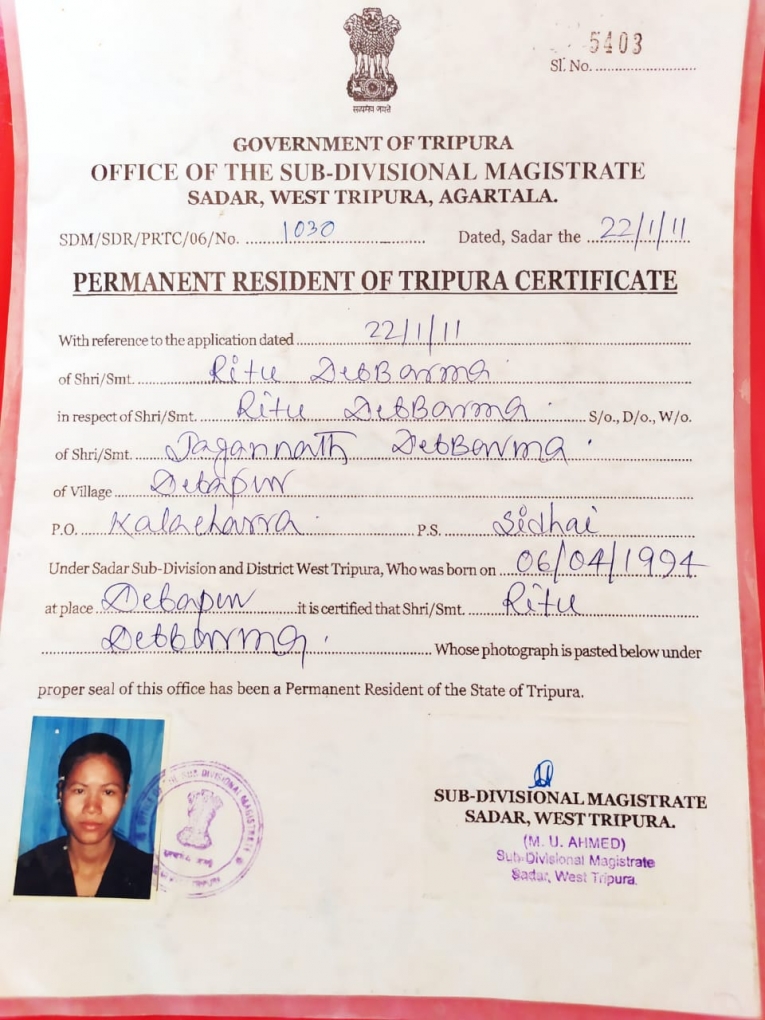 5403
Sl. No. ..............................
सत्यमेव जयते
GOVERNMENT OF TRIPURA
OFFICE OF THE SUB-DIVISIONAL MAGISTRATE
SADAR, WEST TRIPURA, AGARTALA.
SDM/SDR/PRTC/06/No. 1030 Dated, Sadar the 22/1/11
PERMANENT RESIDENT OF TRIPURA CERTIFICATE
With reference to the application dated 22/1/11
of Shri/Smt. Ritu DebBarma
in respect of Shri/Smt. Ritu DebBarma S/o., D/o., W/o.
of Shri/Smt. Jagannath DebBarma
of Village Debapur
P.O. Kalacharra P.S. Sidhai
Under Sadar Sub-Division and District West Tripura, Who was born on 06/04/1994
at place Debapur it is certified that Shri/Smt. Ritu
Debbarma Whose photograph is pasted below under
proper seal of this office has been a Permanent Resident of the State of Tripura.
SUB-DIVISIONAL MAGISTRATE
SADAR, WEST TRIPURA.
(M. U. AHMED)
Sub-Divisional Magistrate
Sadar, West Tripura.